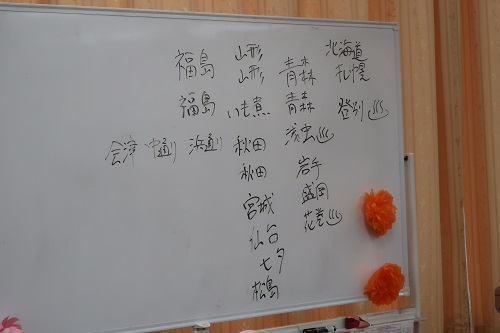 北海道
札幌
登別♨
青森
青森
浅虫♨
岩手
盛岡
花巻♨
山形
山形
いも煮
秋田
秋田
宮城
仙台
七夕
松島
福島
福島
会津 中通り 浜通り